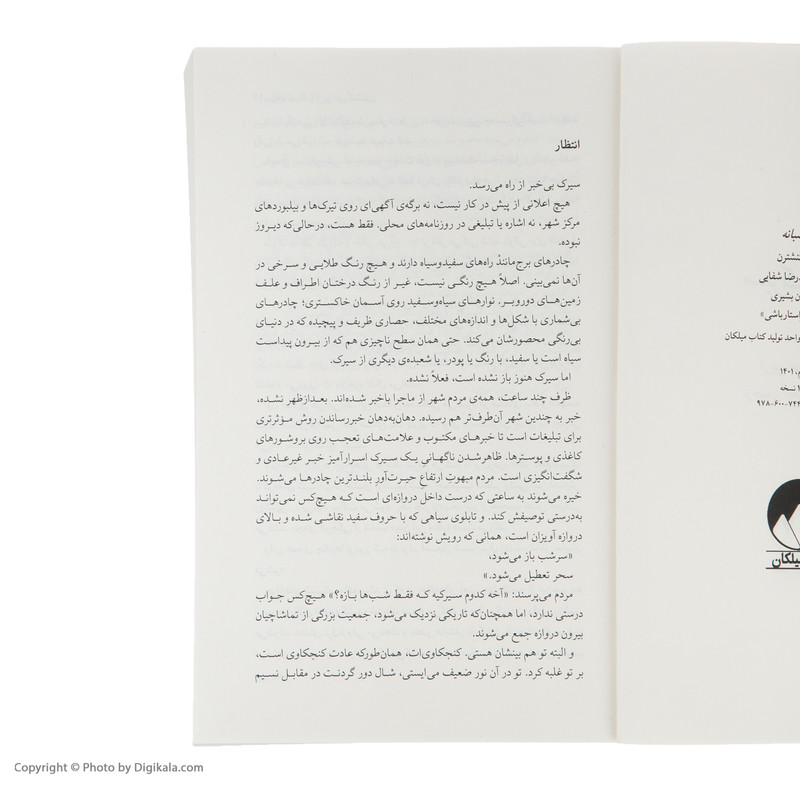 شبانه
رضا شفایی
ن بشیری
استارباشی»
واحد تولید کتاب میلکان
۱۴۰۱
نسخه
۹۷۸-۶۰۰-۷۴۴
میلکان
انتظار
سیرک بی‌خبر از راه می‌رسد.
هیچ اعلانی از پیش در کار نیست، نه برگه‌ی آگهی‌ای روی تیرک‌ها و بیلبوردهای
مرکز شهر، نه اشاره یا تبلیغی در روزنامه‌های محلی. فقط هست، درحالی‌که دیروز
نبوده.
چادرهای برج‌مانندْ راه‌های سفیدوسیاه دارند و هیچ رنگ طلایی و سرخی در
آن‌ها نمی‌بینی. اصلاً هیچ رنگی نیست، غیر از رنگ درختان اطراف و علف
زمین‌های دوروبر. نوارهای سیاه‌وسفید روی آسمان خاکستری؛ چادرهای
بی‌شماری با شکل‌ها و اندازه‌های مختلف، حصاری ظریف و پیچیده که در دنیای
بی‌رنگی محصورشان می‌کند. حتی همان سطح ناچیزی هم که از بیرون پیداست
سیاه است یا سفید، با رنگ یا پودر، یا شعبده‌ی دیگری از سیرک.
اما سیرک هنوز باز نشده است، فعلاً نشده.
ظرف چند ساعت، همه‌ی مردم شهر از ماجرا باخبر شده‌اند. بعدازظهر نشده،
خبر به چندین شهر آن‌طرف‌تر هم رسیده. دهان‌به‌دهان خبررساندن روش مؤثرتری
برای تبلیغات است تا خبرهای مکتوب و علامت‌های تعجب روی بروشورهای
کاغذی و پوسترها. ظاهرشدن ناگهانیِ یک سیرک اسرارآمیز خبر غیرعادی و
شگفت‌انگیزی است. مردم مبهوتِ ارتفاعِ حیرت‌آورِ بلندترین چادرها می‌شوند.
خیره می‌شوند به ساعتی که درست داخل دروازه‌ای است که هیچ‌کس نمی‌تواند
به‌درستی توصیفش کند. و تابلوی سیاهی که با حروف سفید نقاشی شده و بالای
دروازه آویزان است، همانی که رویش نوشته‌اند:
«سرشب باز می‌شود،
سحر تعطیل می‌شود.»
مردم می‌پرسند: «آخه کدوم سیرکیه که فقط شب‌ها بازه؟» هیچ‌کس جواب
درستی ندارد، اما همچنان‌که تاریکی نزدیک می‌شود، جمعیت بزرگی از تماشاچیان
بیرون دروازه جمع می‌شوند.
و البته تو هم بینشان هستی. کنجکاوی‌ات، همان‌طورکه عادت کنجکاوی است،
بر تو غلبه کرد. تو در آن نور ضعیف می‌ایستی، شال دور گردنت در مقابل نسیم
Copyright © Photo by Digikala.com